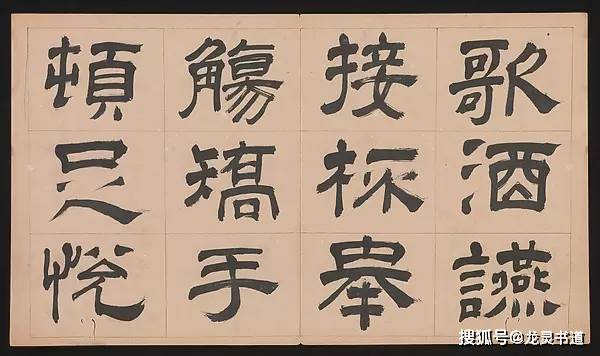 歌酒讌
接杯舉
觴矯手
頓足悅
搜狐号@龙灵书道